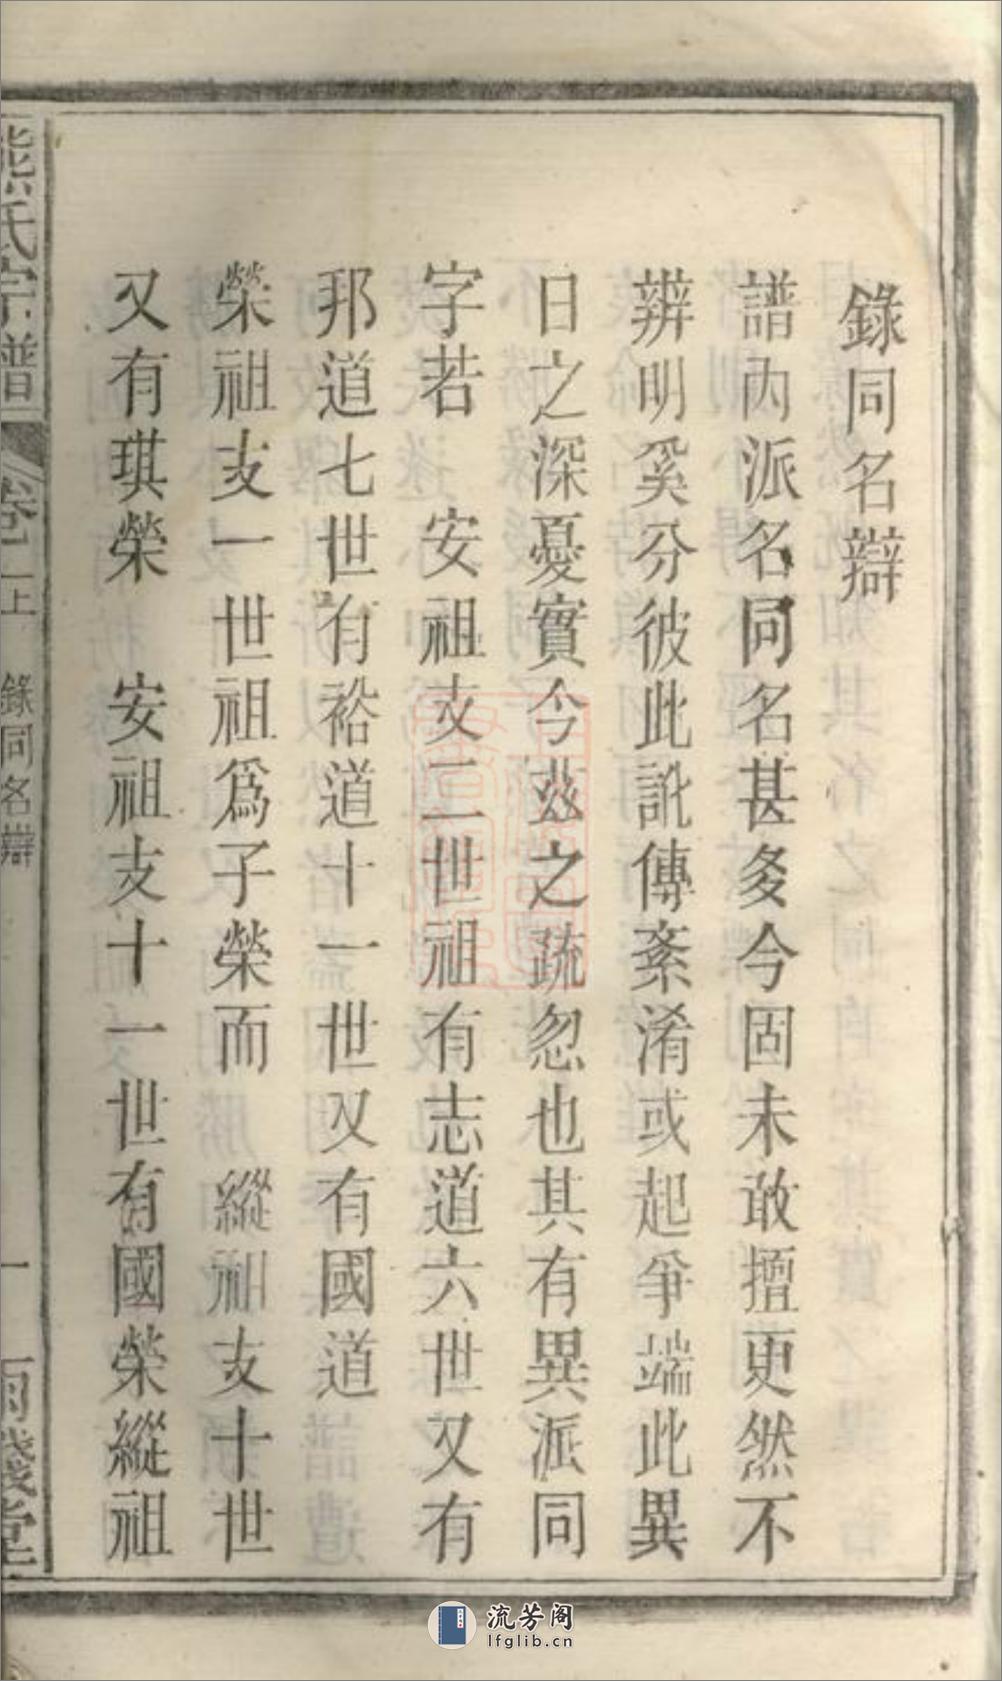 錄同名辯
譜內派名同名甚多今固未敢擅更然不
辨明奚分彼此訛傳紊淆或起爭端此異
日之深憂實今茲之疏忽也其有異派同
字若　安祖支二世祖有志道六世又有
邦道七世有裕道十一世又有國道
榮祖支一世祖為子榮而　縱祖支十世
又有琪榮　安祖支十一世有國榮縱祖
熊氏宗譜 卷一上 錄同名辯 一
流芳阁
lfglib.cn